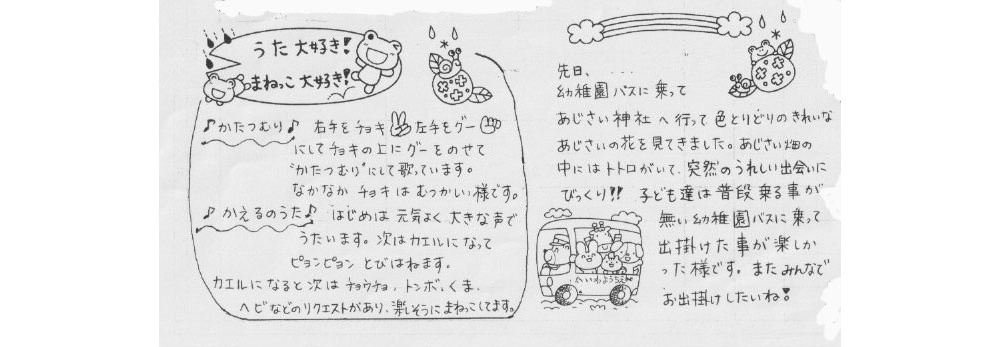 うた大好き!
まねっこ大好き!
♪かたつむり♪ 右手をチョキ 左手をグー
にしてチョキの上にグーをのせて
"かたつむり"にして歌っています。
なかなか チョキは むつかしい様です。
♪かえるのうた♪ はじめは 元気よく 大きな声で
うたいます。次はカエルになって
ピョンピョン とびはねます。
カエルになると次は チョウチョ、トンボ、くま、
ヘビなどのリクエストがあり、楽しそうにまねっこしてます。
先日、....
幼稚園バスに乗って
あじさい神社へ行って色とりどりのきれいな
あじさいの花を見てきました。あじさい畑の
中にはトトロがいて、突然のうれしい出会いに
びっくり!! 子ども達は普段乗る事が
無い幼稚園バスに乗って
出掛けた事が楽しか
った様です。またみんなで
お出掛けしたいね!
へいわようちえん